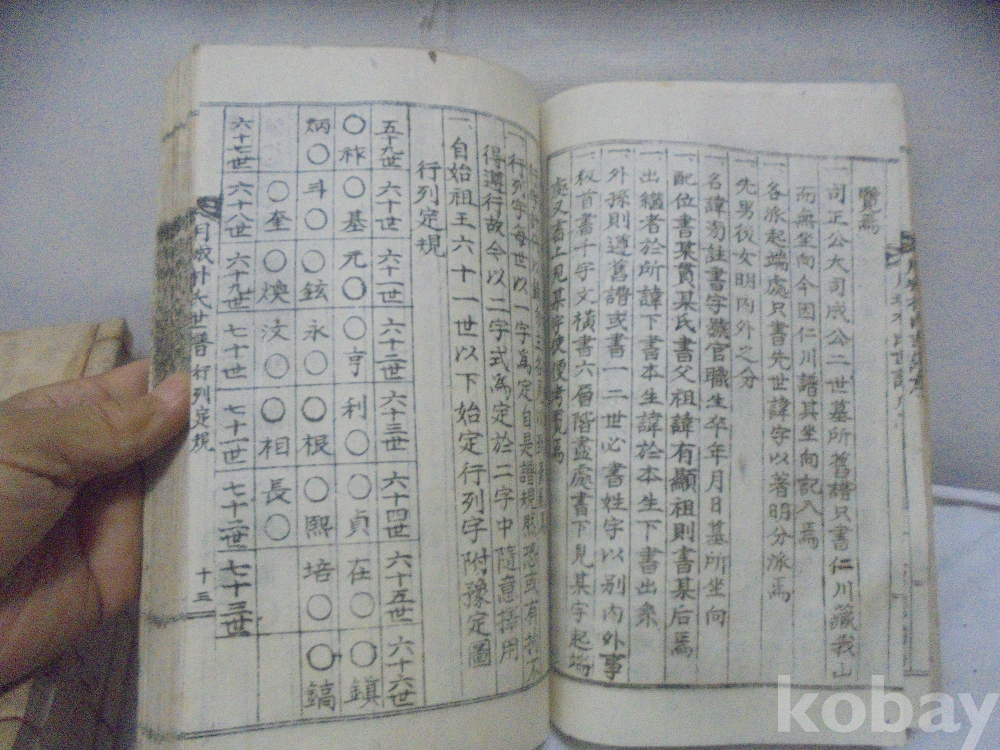 覽焉
一司正公大司成公二世墓所舊譜只書仁川藏我山
而無坐向今因仁川譜其坐向記入焉
一各派起端處只書先世諱字以著明分派焉
先男後女明內外之分
一名諱旁註書字號官職生卒年月日墓所坐向
一配位書某貫某氏書父祖諱有顯祖則書某后焉
一出繼者於所諱下書本生諱於本生下書出系
一外孫則遵舊譜或書一二世必書姓字以別內外事
一板首書千字文橫書六層階盡處書下見某字起塲
處又書上見某字便考覽焉
一行列字每世以一字爲定自是譜規然恐或有拘不
得遵行故今以二字式爲定於二字中隨意採用
一自始祖王六十一世以下始定行列字附豫定圖
行列定規
五十九世 六十世 六十一世 六十二世 六十三世 六十四世 六十五世 六十六世
〇祚 〇基 元〇 〇亨 利〇 〇貞 在〇 〇鎭
炳〇 斗〇 〇鉉 永〇 〇根 〇熙 培〇 〇鎬
〇奎 〇煥 汶〇 〇相 長〇
六十七世 六十八世 六十九世 七十世 七十一世 七十二世 七十三世
月城朴氏世譜 行列定規 十三
kobay